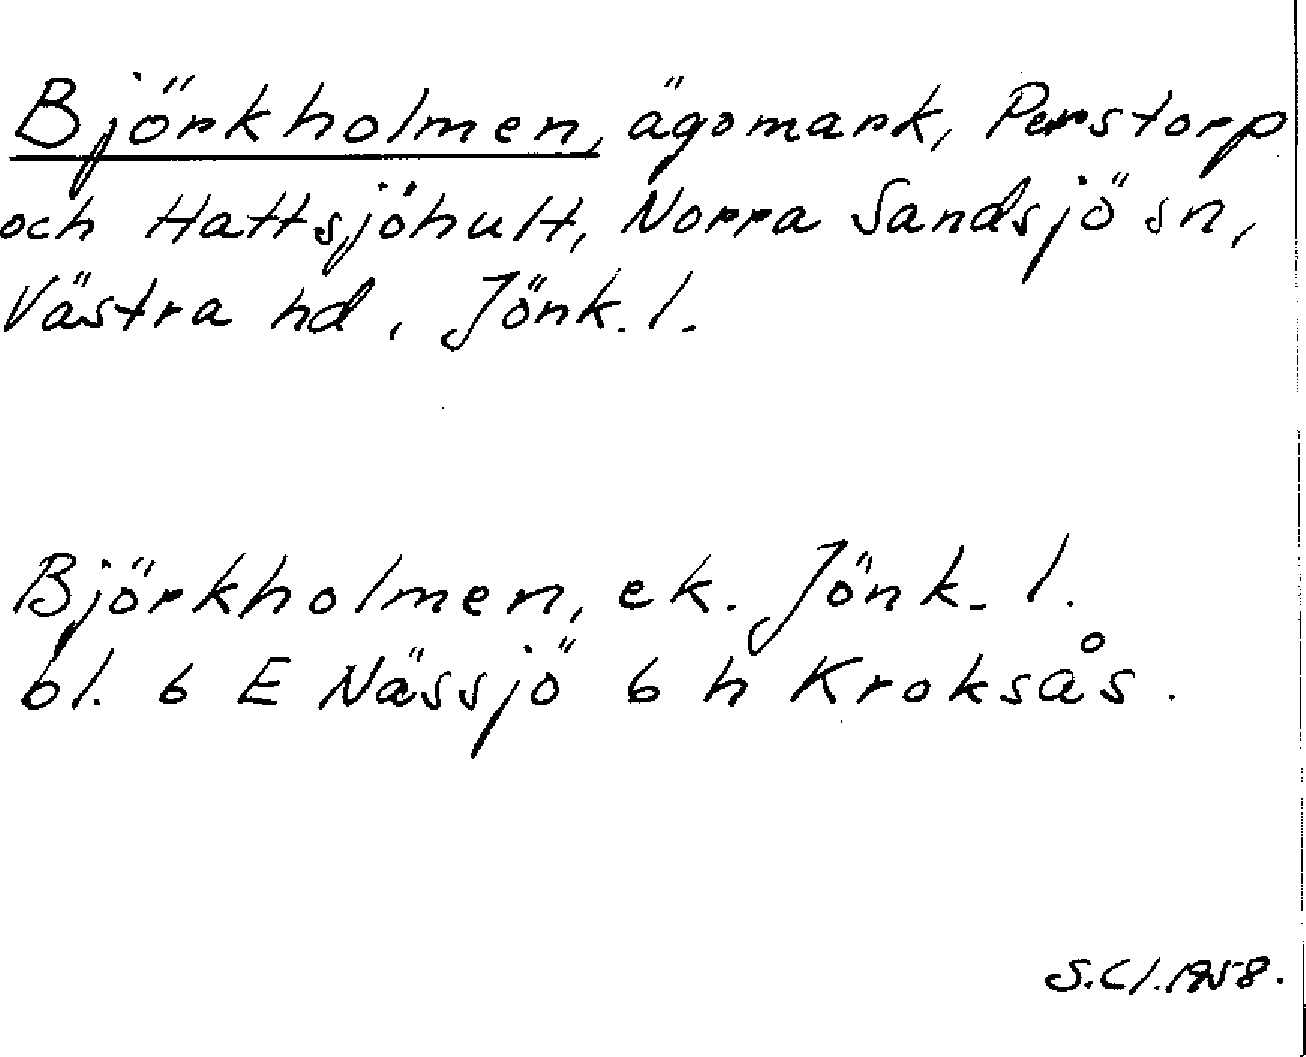 Björkholmen, ägomark, Perstorp
och Hattsjöhult, Norra Sandsjö sn,
Västra hd, Jönk. l.
Björkholmen, ek. Jönk. l.
bl. 6 E Nässjö 6 h Kroksås.
S.Cl. 1958.